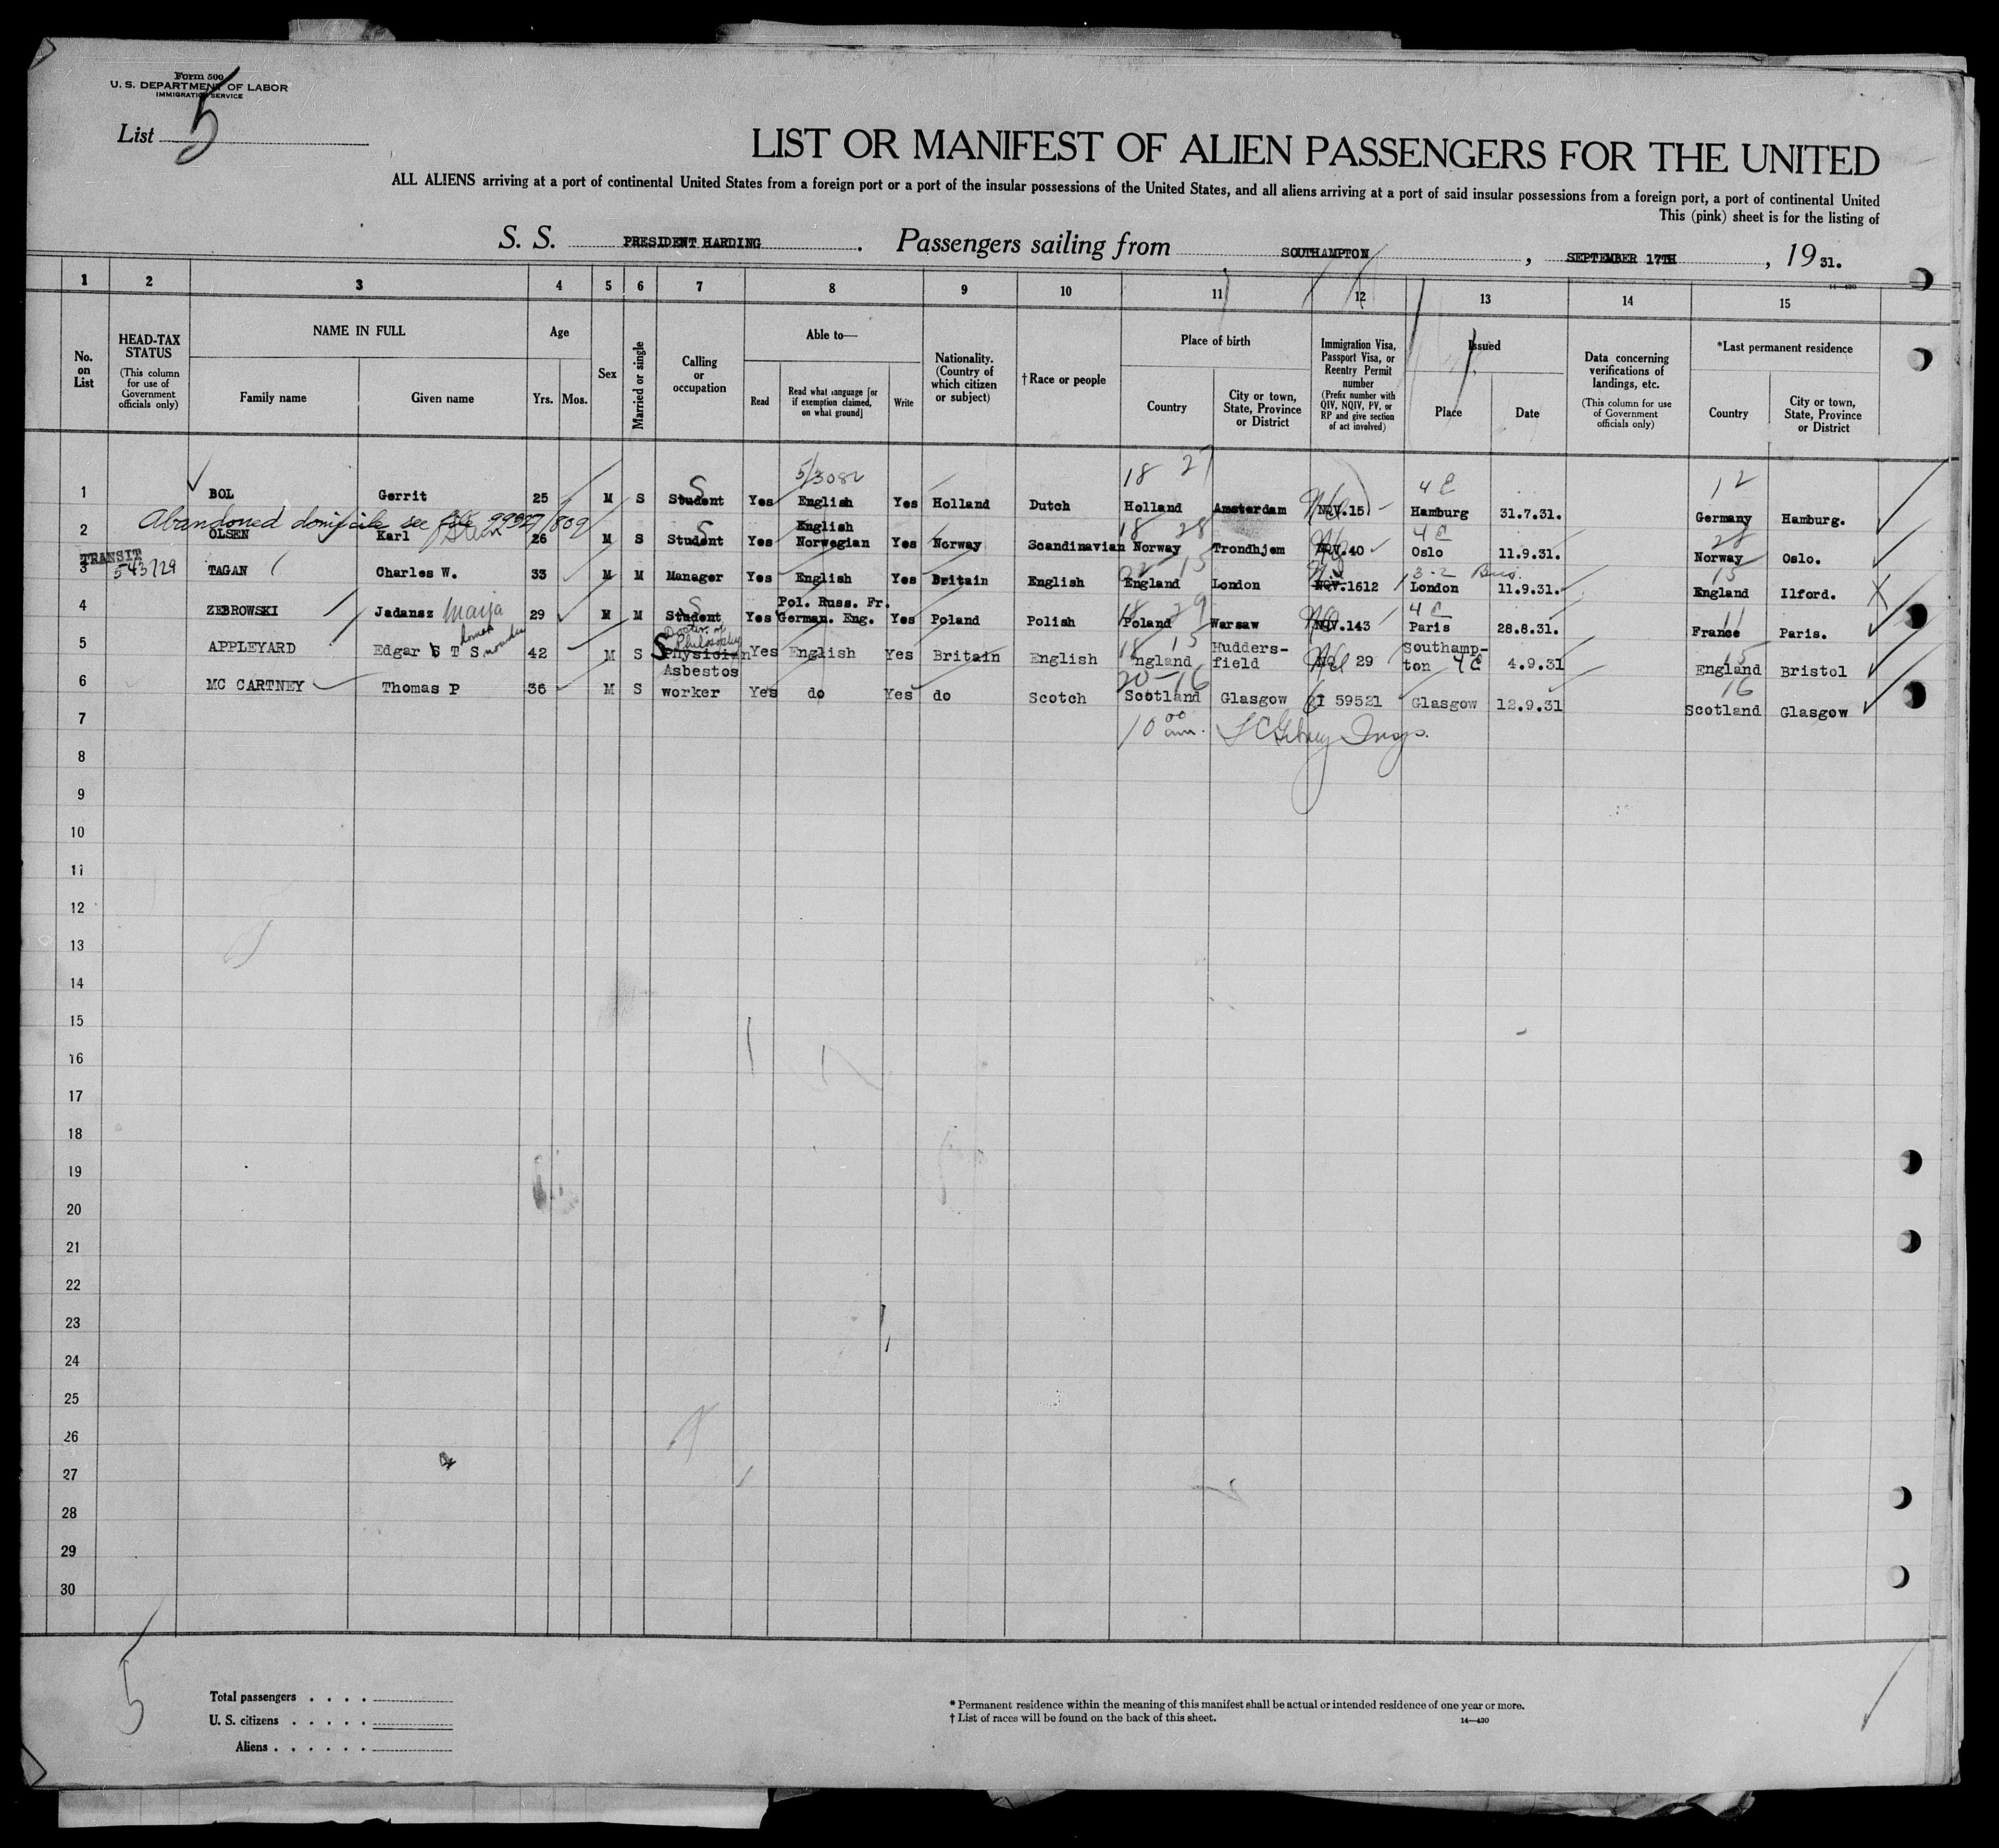 Form 500
U. S. DEPARTMENT OF LABOR
IMMIGRATION SERVICE
List 5
LIST OR MANIFEST OF ALIEN PASSENGERS FOR THE UNITED
ALL ALIENS arriving at a port of continental United States from a foreign port or a port of the insular possessions of the United States, and all aliens arriving at a port of said insular possessions from a foreign port, a port of continental United
This (pink) sheet is for the listing of
S. S. PRESIDENT HARDING. Passengers sailing from SOUTHAMPTON, SEPTEMBER 17TH, 1931.
14—430
1 2 3 4 5 6 7 8 9 10 11 12 13 14 15
No. on List
HEAD-TAX STATUS (This column for use of Government officials only)
NAME IN FULL Family name Given name
Age Yrs. Mos.
Sex
Married or single
Calling or occupation
Able to— Read Read what language [or if exemption claimed, on what ground] Write
Nationality. (Country of which citizen or subject)
†Race or people
Place of birth Country City or town, State, Province or District
Immigration Visa, Passport Visa, or Reentry Permit number (Prefix number with QIV, NQIV, PV, or RP and give section of act involved)
Issued Place Date
Data concerning verifications of landings, etc. (This column for use of Government officials only)
*Last permanent residence Country City or town, State, Province or District
5/3082 18 27 4 E 12
1 BOL Gerrit 25 M S Student S Yes English Yes Holland Dutch Holland Amsterdam NQV.15 Hamburg 31.7.31. Germany Hamburg.
Abandoned domicile see file 99327/809
English 18 28 4 E 28
2 OLSEN Karl 26 M S Student S Yes Norwegian Yes Norway Scandinavian Norway Trondhjem NQV.40 Oslo 11.9.31. Norway Oslo.
TRANSIT
543729 15 3-2 Bus. 15
3 TAGAN Charles W. 33 M M Manager Yes English Yes Britain English England London NQV.1612 London 11.9.31. England Ilford.
Pol. Russ. Fr. 18 29 4 E 11
4 ZEBROWSKI Jadansz 29 M M Student S Yes German. Eng. Yes Poland Polish Poland Warsaw NQV.143 Paris 28.8.31. France Paris.
Doctor of Philosophy 18 15 Hudders- Southamp- 15
5 APPLEYARD Edgar S T S 42 M S Physician S Yes English Yes Britain English England field 29 ton 4 E 4.9.31 England Bristol
Asbestos 20-16 16
6 MC CARTNEY Thomas P 36 M S worker Yes do Yes do Scotch Scotland Glasgow QI 59521 Glasgow 12.9.31 Scotland Glasgow
7 10 00 am. Insp.
8
9
10
11
12
13
14
15
16
17
18
19
20
21
22
23
24
25
26
27
28
29
30
5
Total passengers . . . .
U. S. citizens . . . . .
Aliens . . . . . .
* Permanent residence within the meaning of this manifest shall be actual or intended residence of one year or more.
† List of races will be found on the back of this sheet.
14—430